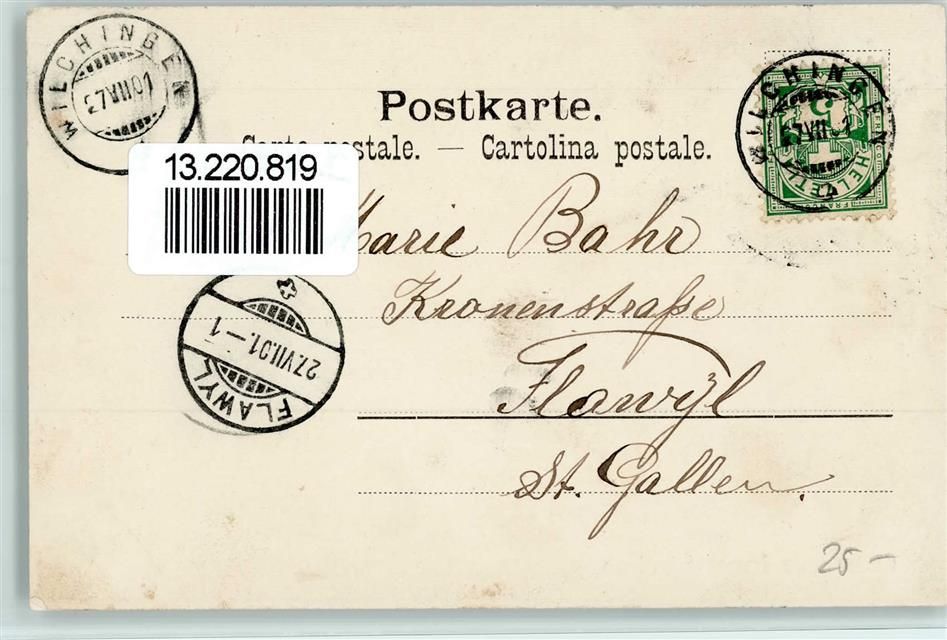 WILCHINGEN
27.VII.01
Postkarte.
Carte postale. — Cartolina postale.
WILCHINGEN
27.VII.01
5
HELVETIA
FRANCO
13.220.819
Marie Bahr
Kronenstraße
Flawyl
St. Gallen.
FLAWYL
27.VII.01.–1
25-